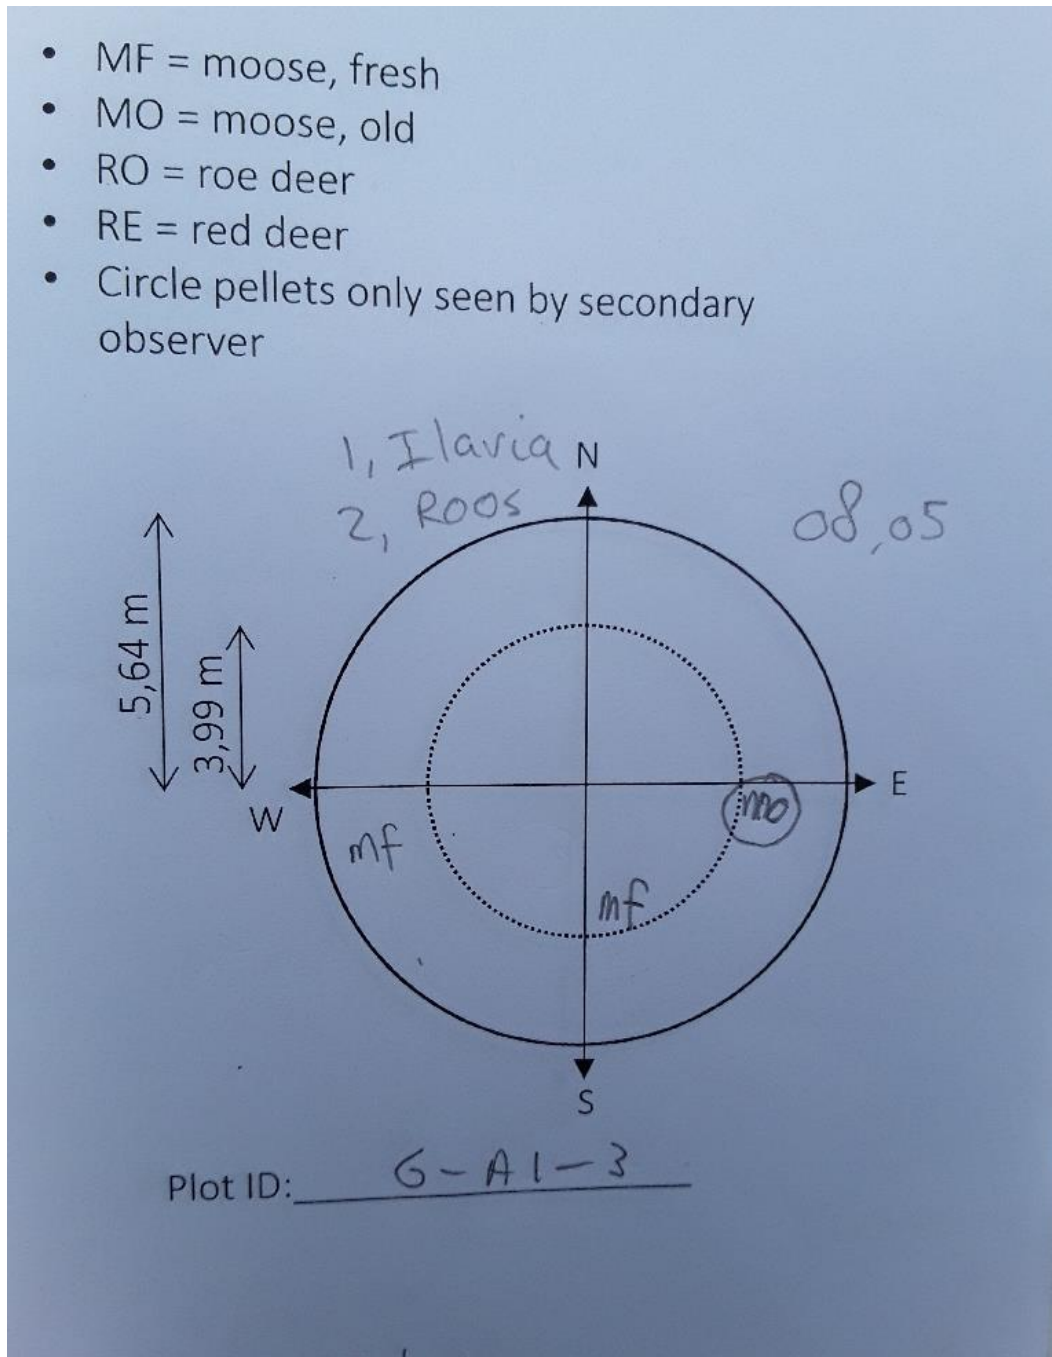 • MF = moose, fresh
• MO = moose, old
• RO = roe deer
• RE = red deer
• Circle pellets only seen by secondary
observer
1, Ilaria N
2, Roos
08,05
5,64 m
3,99 m
W
E
mo
mf
mf
S
Plot ID: G-A1-3